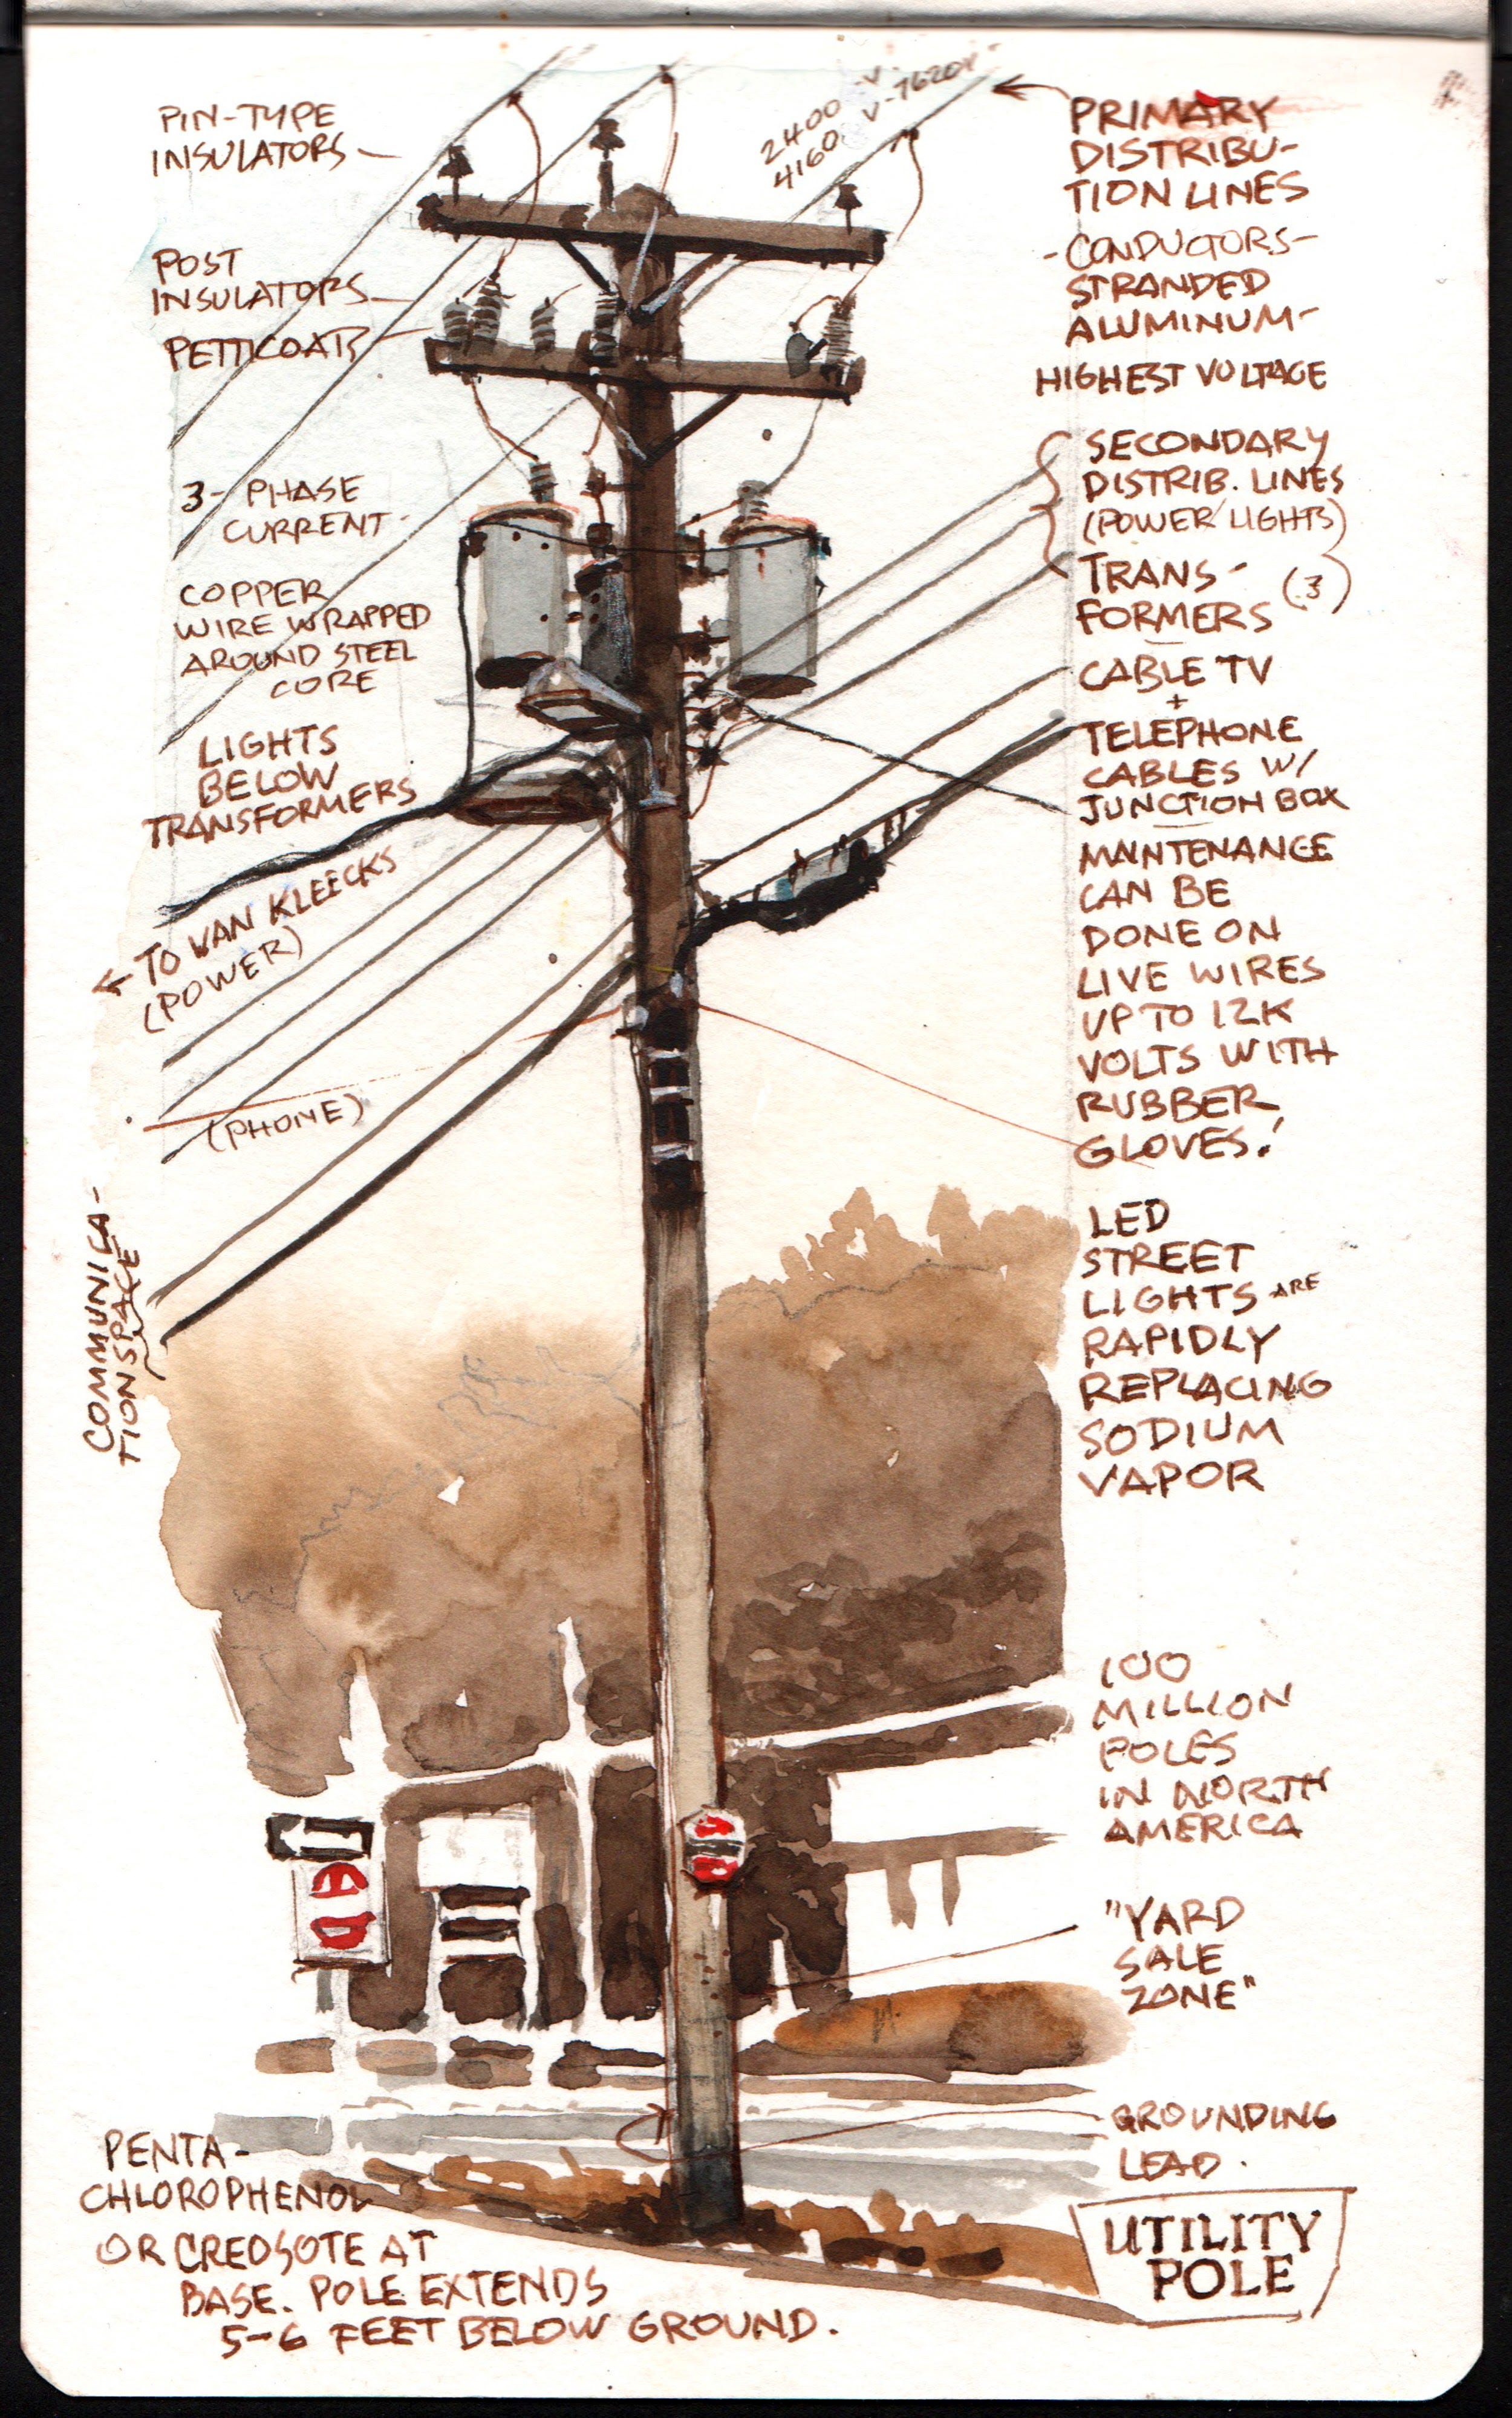 PIN-TYPE
INSULATORS
POST
INSULATORS
PETTICOATS
3-PHASE
CURRENT
COPPER
WIRE WRAPPED
AROUND STEEL
CORE
LIGHTS
BELOW
TRANSFORMERS
TO VAN KLEECKS
(POWER)
(PHONE)
COMMUNICA-
TION SPACE
PENTA-
CHLOROPHENOL
OR CREOSOTE AT
BASE. POLE EXTENDS
5-6 FEET BELOW GROUND.
2400 V-
4160 V-7620V
PRIMARY
DISTRIBU-
TION LINES
-CONDUCTORS-
STRANDED
ALUMINUM-
HIGHEST VOLTAGE
SECONDARY
DISTRIB. LINES
(POWER/LIGHTS)
TRANS-
FORMERS (3)
CABLE TV
+
TELEPHONE
CABLES W/
JUNCTION BOX
MAINTENANCE
CAN BE
DONE ON
LIVE WIRES
UP TO 12K
VOLTS WITH
RUBBER
GLOVES!
LED
STREET
LIGHTS ARE
RAPIDLY
REPLACING
SODIUM
VAPOR
100
MILLION
POLES
IN NORTH
AMERICA
"YARD
SALE
ZONE"
GROUNDING
LEAD.
UTILITY
POLE